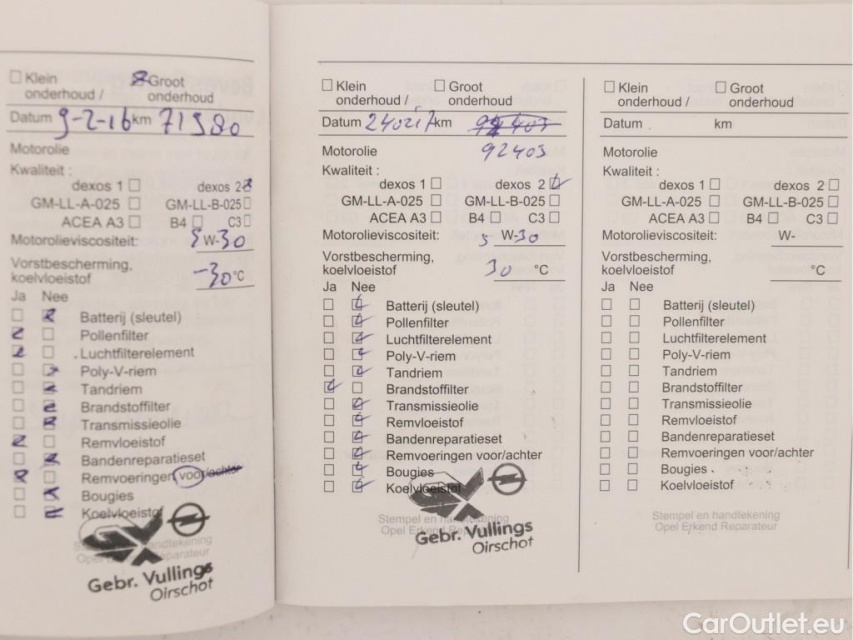 Klein onderhoud / Groot onderhoud
Datum 9-2-16 km 71980
Motorolie
Kwaliteit :
dexos 1 dexos 2
GM-LL-A-025 GM-LL-B-025
ACEA A3 B4 C3
Motorolieviscositeit: 5 W-30
Vorstbescherming,
koelvloeistof -30 °C
Ja Nee
Batterij (sleutel)
Pollenfilter
Luchtfilterelement
Poly-V-riem
Tandriem
Brandstoffilter
Transmissieolie
Remvloeistof
Bandenreparatieset
Remvoeringen voor/achter
Bougies
Koelvloeistof
Gebr. Vullings
Oirschot
Klein onderhoud / Groot onderhoud
Datum 240217 km 92403
Motorolie 92403
Kwaliteit :
dexos 1 dexos 2
GM-LL-A-025 GM-LL-B-025
ACEA A3 B4 C3
Motorolieviscositeit: 5 W-30
Vorstbescherming,
koelvloeistof 30 °C
Ja Nee
Batterij (sleutel)
Pollenfilter
Luchtfilterelement
Poly-V-riem
Tandriem
Brandstoffilter
Transmissieolie
Remvloeistof
Bandenreparatieset
Remvoeringen voor/achter
Bougies
Koelvloeistof
Stempel en handtekening
Opel Erkend Reparateur
Gebr. Vullings
Oirschot
Klein onderhoud / Groot onderhoud
Datum km
Motorolie
Kwaliteit :
dexos 1 dexos 2
GM-LL-A-025 GM-LL-B-025
ACEA A3 B4 C3
Motorolieviscositeit: W-
Vorstbescherming,
koelvloeistof °C
Ja Nee
Batterij (sleutel)
Pollenfilter
Luchtfilterelement
Poly-V-riem
Tandriem
Brandstoffilter
Transmissieolie
Remvloeistof
Bandenreparatieset
Remvoeringen voor/achter
Bougies
Koelvloeistof
Stempel en handtekening
Opel Erkend Reparateur
CarOutlet.eu